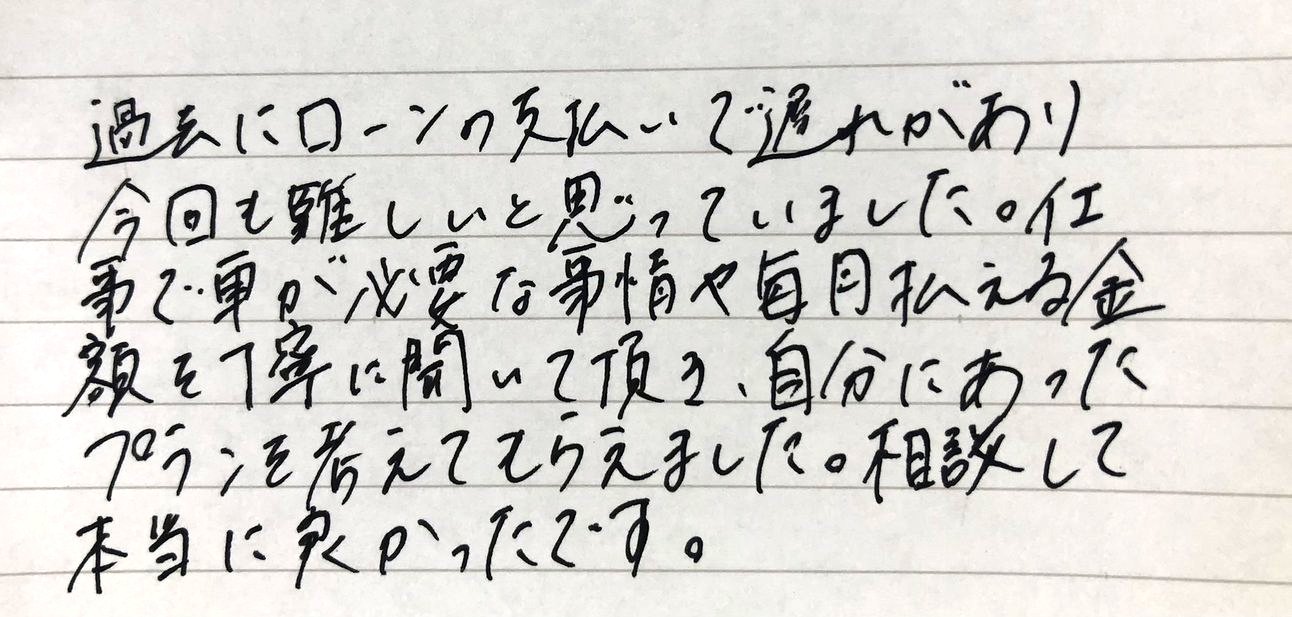 過去にローンの支払いで遅れがあり
今回も難しいと思っていました。仕
事で車が必要な事情や毎月払える金
額を丁寧に聞いて頂き、自分にあった
プランを考えてもらえました。相談して
本当に良かったです。